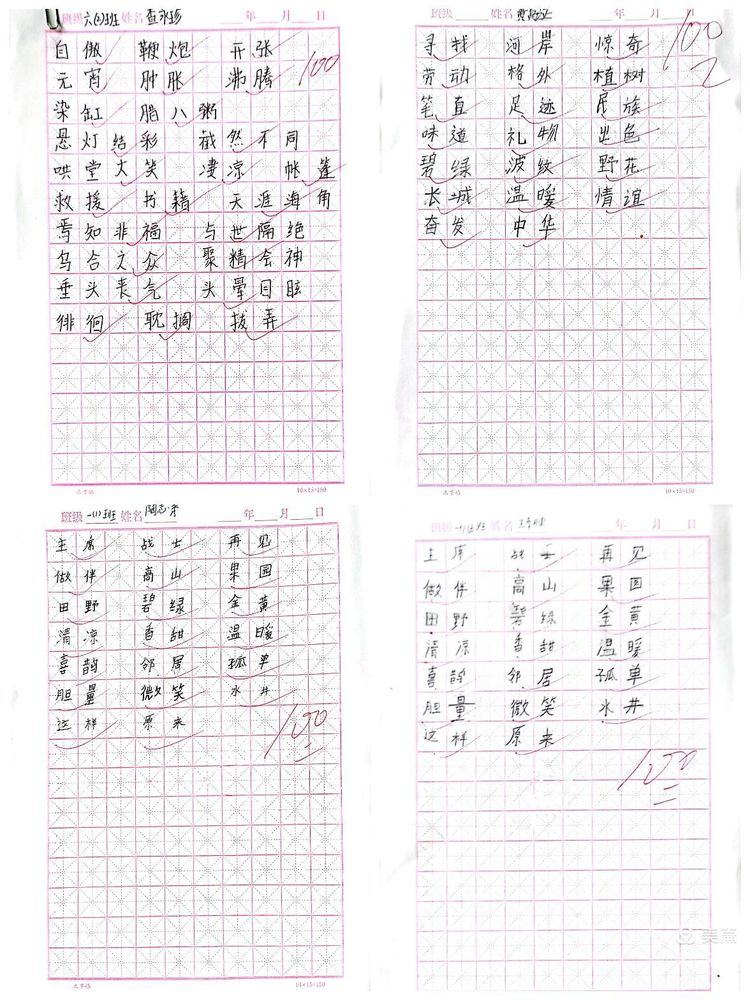 班级 六(2)班 姓名 查永珍 年 月 日
自傲 鞭炮 开张
100
元宵 肿胀 沸腾
染缸 腊八粥
悬灯结彩 截然不同
哄堂大笑 凄凉 帐篷
救援 书籍 天涯海角
焉知非福 与世隔绝
乌合之众 聚精会神
垂头丧气 头晕目眩
徘徊 耽搁 拨弄
大字格 10×15=150
班级 姓名 年 月 日
寻找 河岸 惊奇
100
劳动 格外 植树
笔直 足迹 民族
味道 礼物 出色
碧绿 波纹 野花
长城 温暖 情谊
奋发 中华
大字格 10×15=150
班级 一(1)班 姓名 年 月 日
主席 战士 再见
做伴 高山 果园
田野 碧绿 金黄
清凉 香甜 温暖
喜鹊 邻居 孤单
胆量 微笑 水井
这样 原来
100
大字格 10×15=150
班级 一(1)班 姓名 年 月 日
主席 战士 再见
做伴 高山 果园
田野 碧绿 金黄
清凉 香甜 温暖
喜鹊 邻居 孤单
胆量 微笑 水井
这样 原来
100
美篇